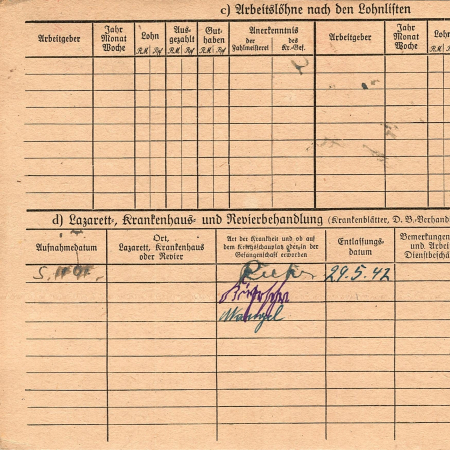 c) Arbeitslöhne nach den Lohnlisten
Arbeitgeber
Jahr
Monat
Woche
Lohn
RM Rpf
Aus-
gezahlt
RM Rpf
Gut-
haben
RM Rpf
Anerkenntnis
der
Zahlmeisterei
des
Kr.-Gef.
Arbeitgeber
Jahr
Monat
Woche
Lohn
RM
d) Lazarett-, Krankenhaus- und Revierbehandlung (Krankenblätter, D. B.-Verhand
Aufnahmedatum
Ort,
Lazarett, Krankenhaus
oder Revier
Art der Krankheit und ob auf
dem Kriegsschauplatz oder in der
Gefangenschaft erworben
Entlassungs-
datum
Bemerkungen
und Arbei
Dienstbeschä
29.5.42